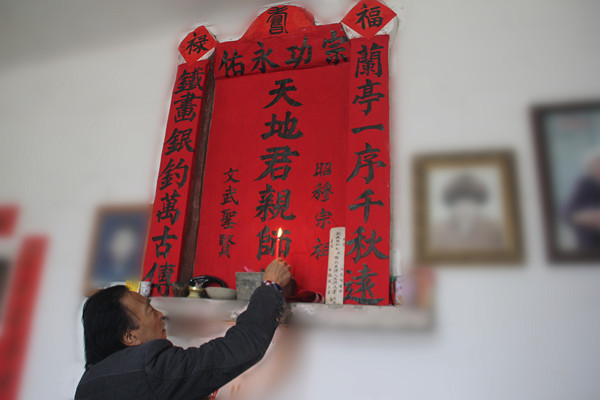 福
壽
禄
宗功永佑
蘭亭一序千秋遠
鐵畫銀鈎萬古傳
天地君親師
昭穆宗祖
文武聖賢